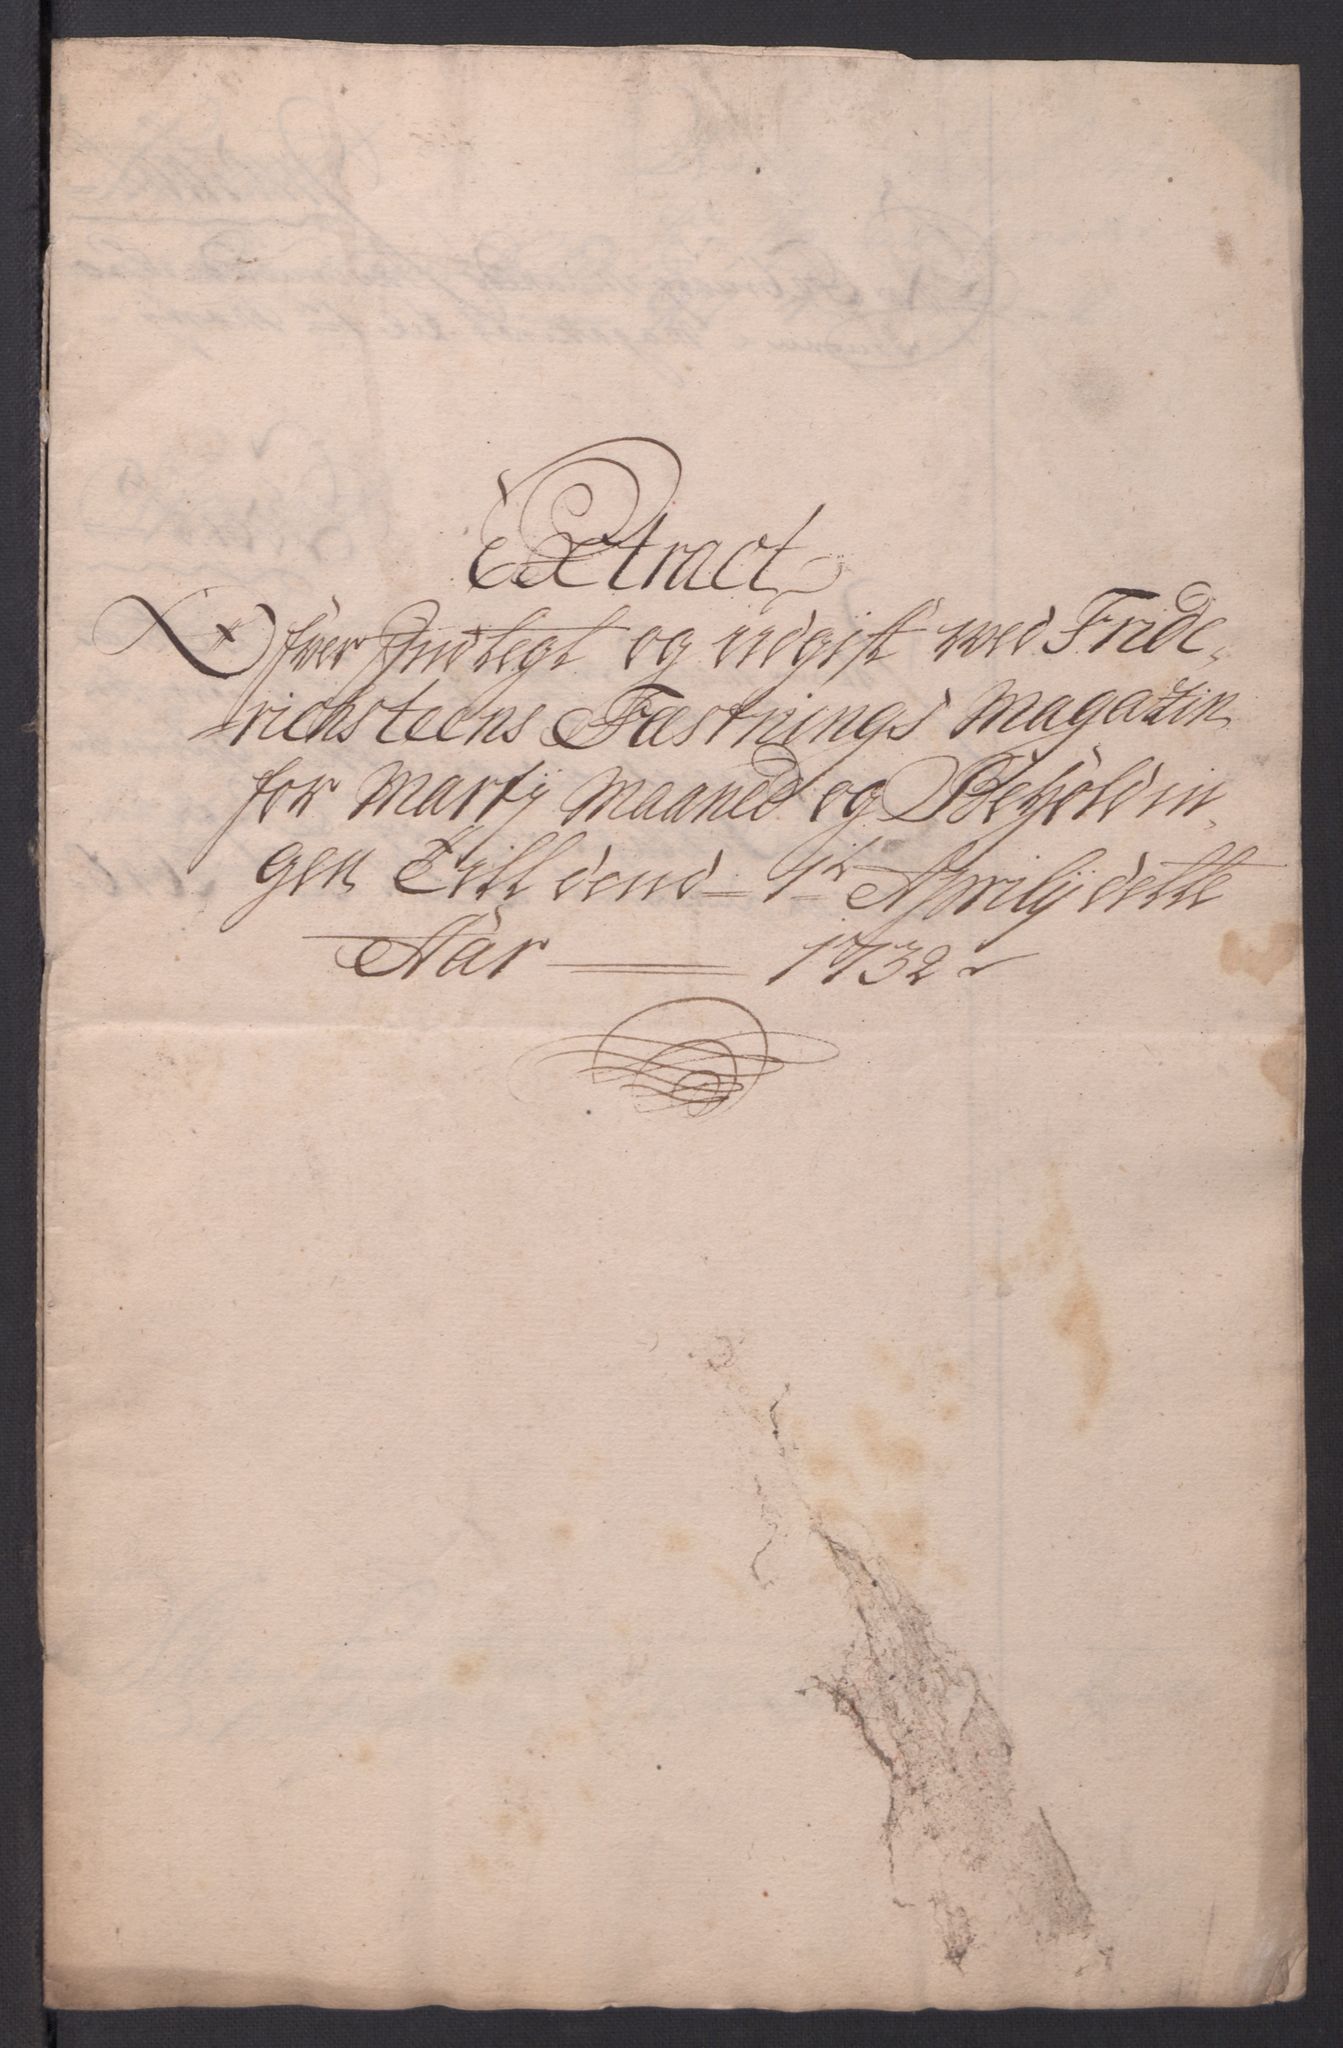 Extract
Ofver Indtegt og udgift ved Fride,
richsteens Fæstnings Magazin
for Martij Maaned og Beholdin,
gen Till dend 1te Aprilij dette
Aar 1732